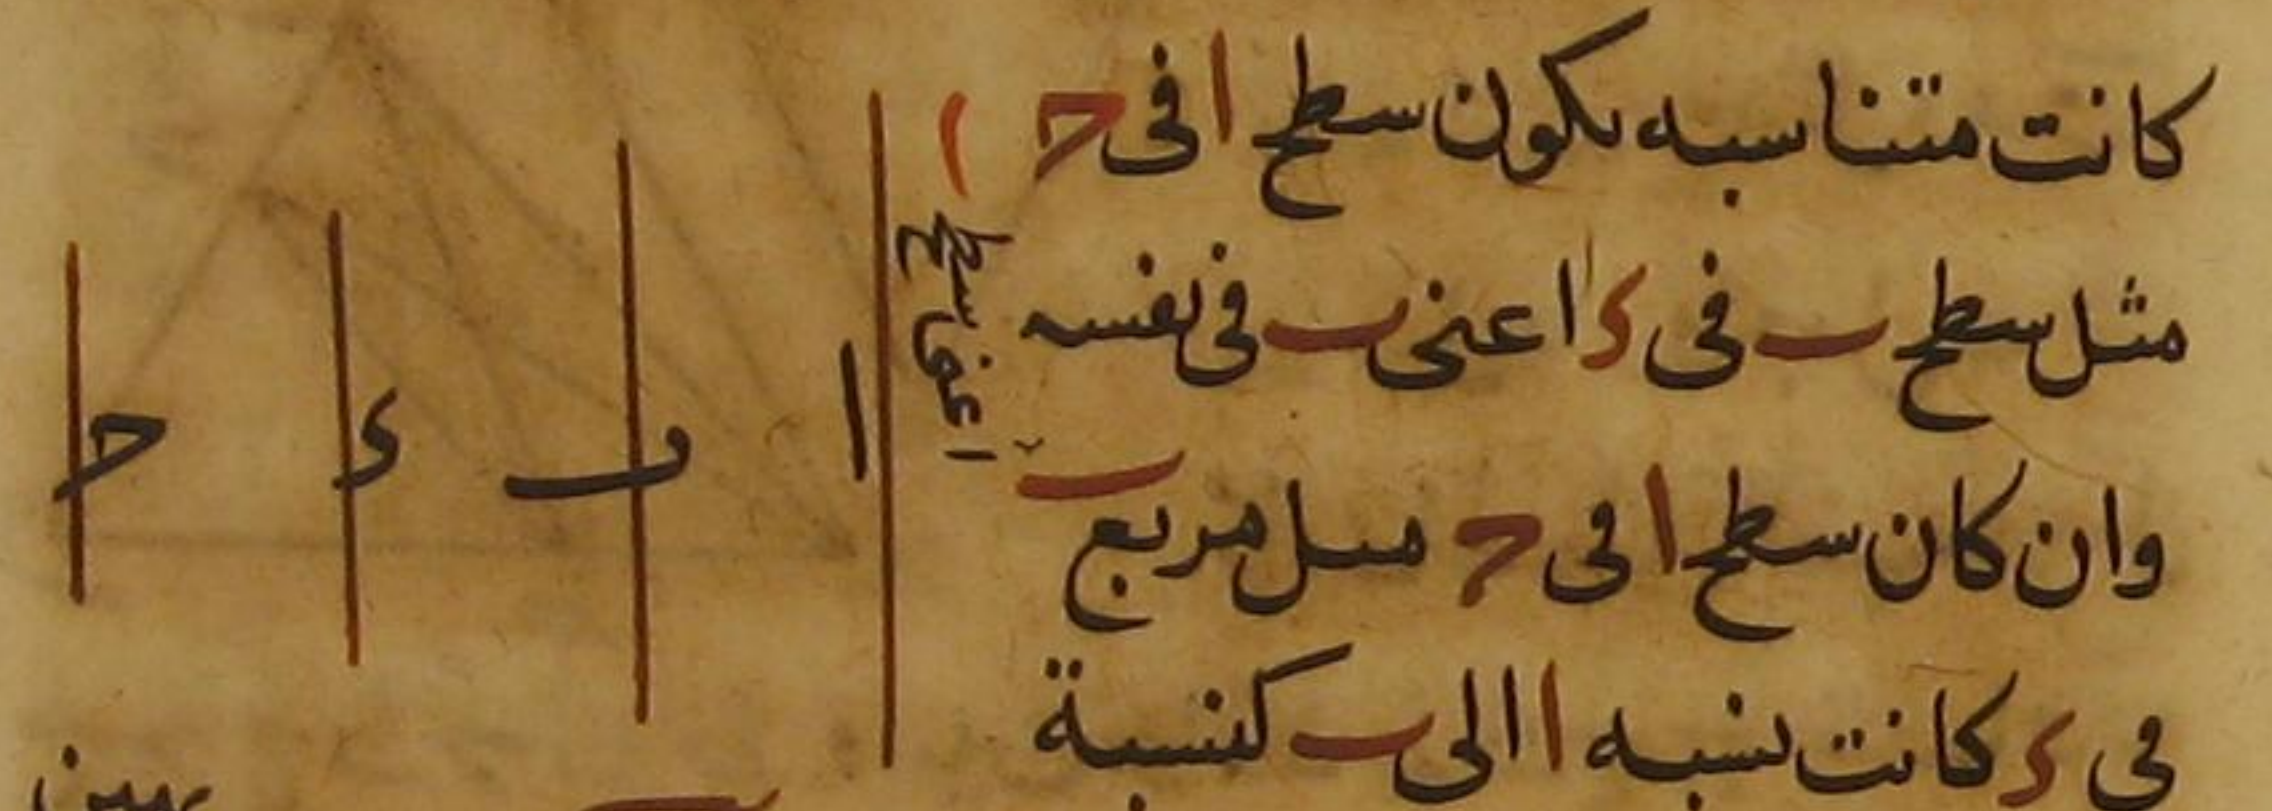 كانت متناسبه يكون سطح ا فى ح
مثل سطح ب فى د اعنى ب فى نفسه
وان كان سطح ا فى ح مثل مربع ب
اعنى سطح
فى د كانت نسبه ا الى ب كنسبة
ا
ب
د
ح